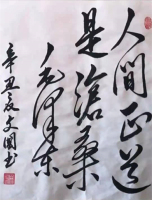 人间正道
是沧桑
毛泽东
辛丑夏文国书